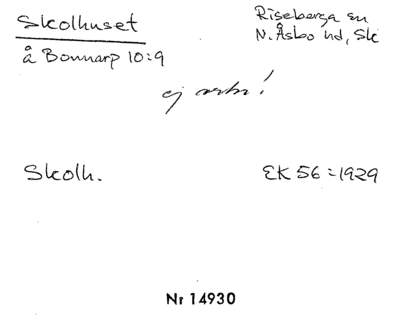 Skolhuset
Riseberga sn
å Bonnarp 10:9
N. Åsbo hd, Sk
ej
Skolh.
EK 56:1929
Nr 14930